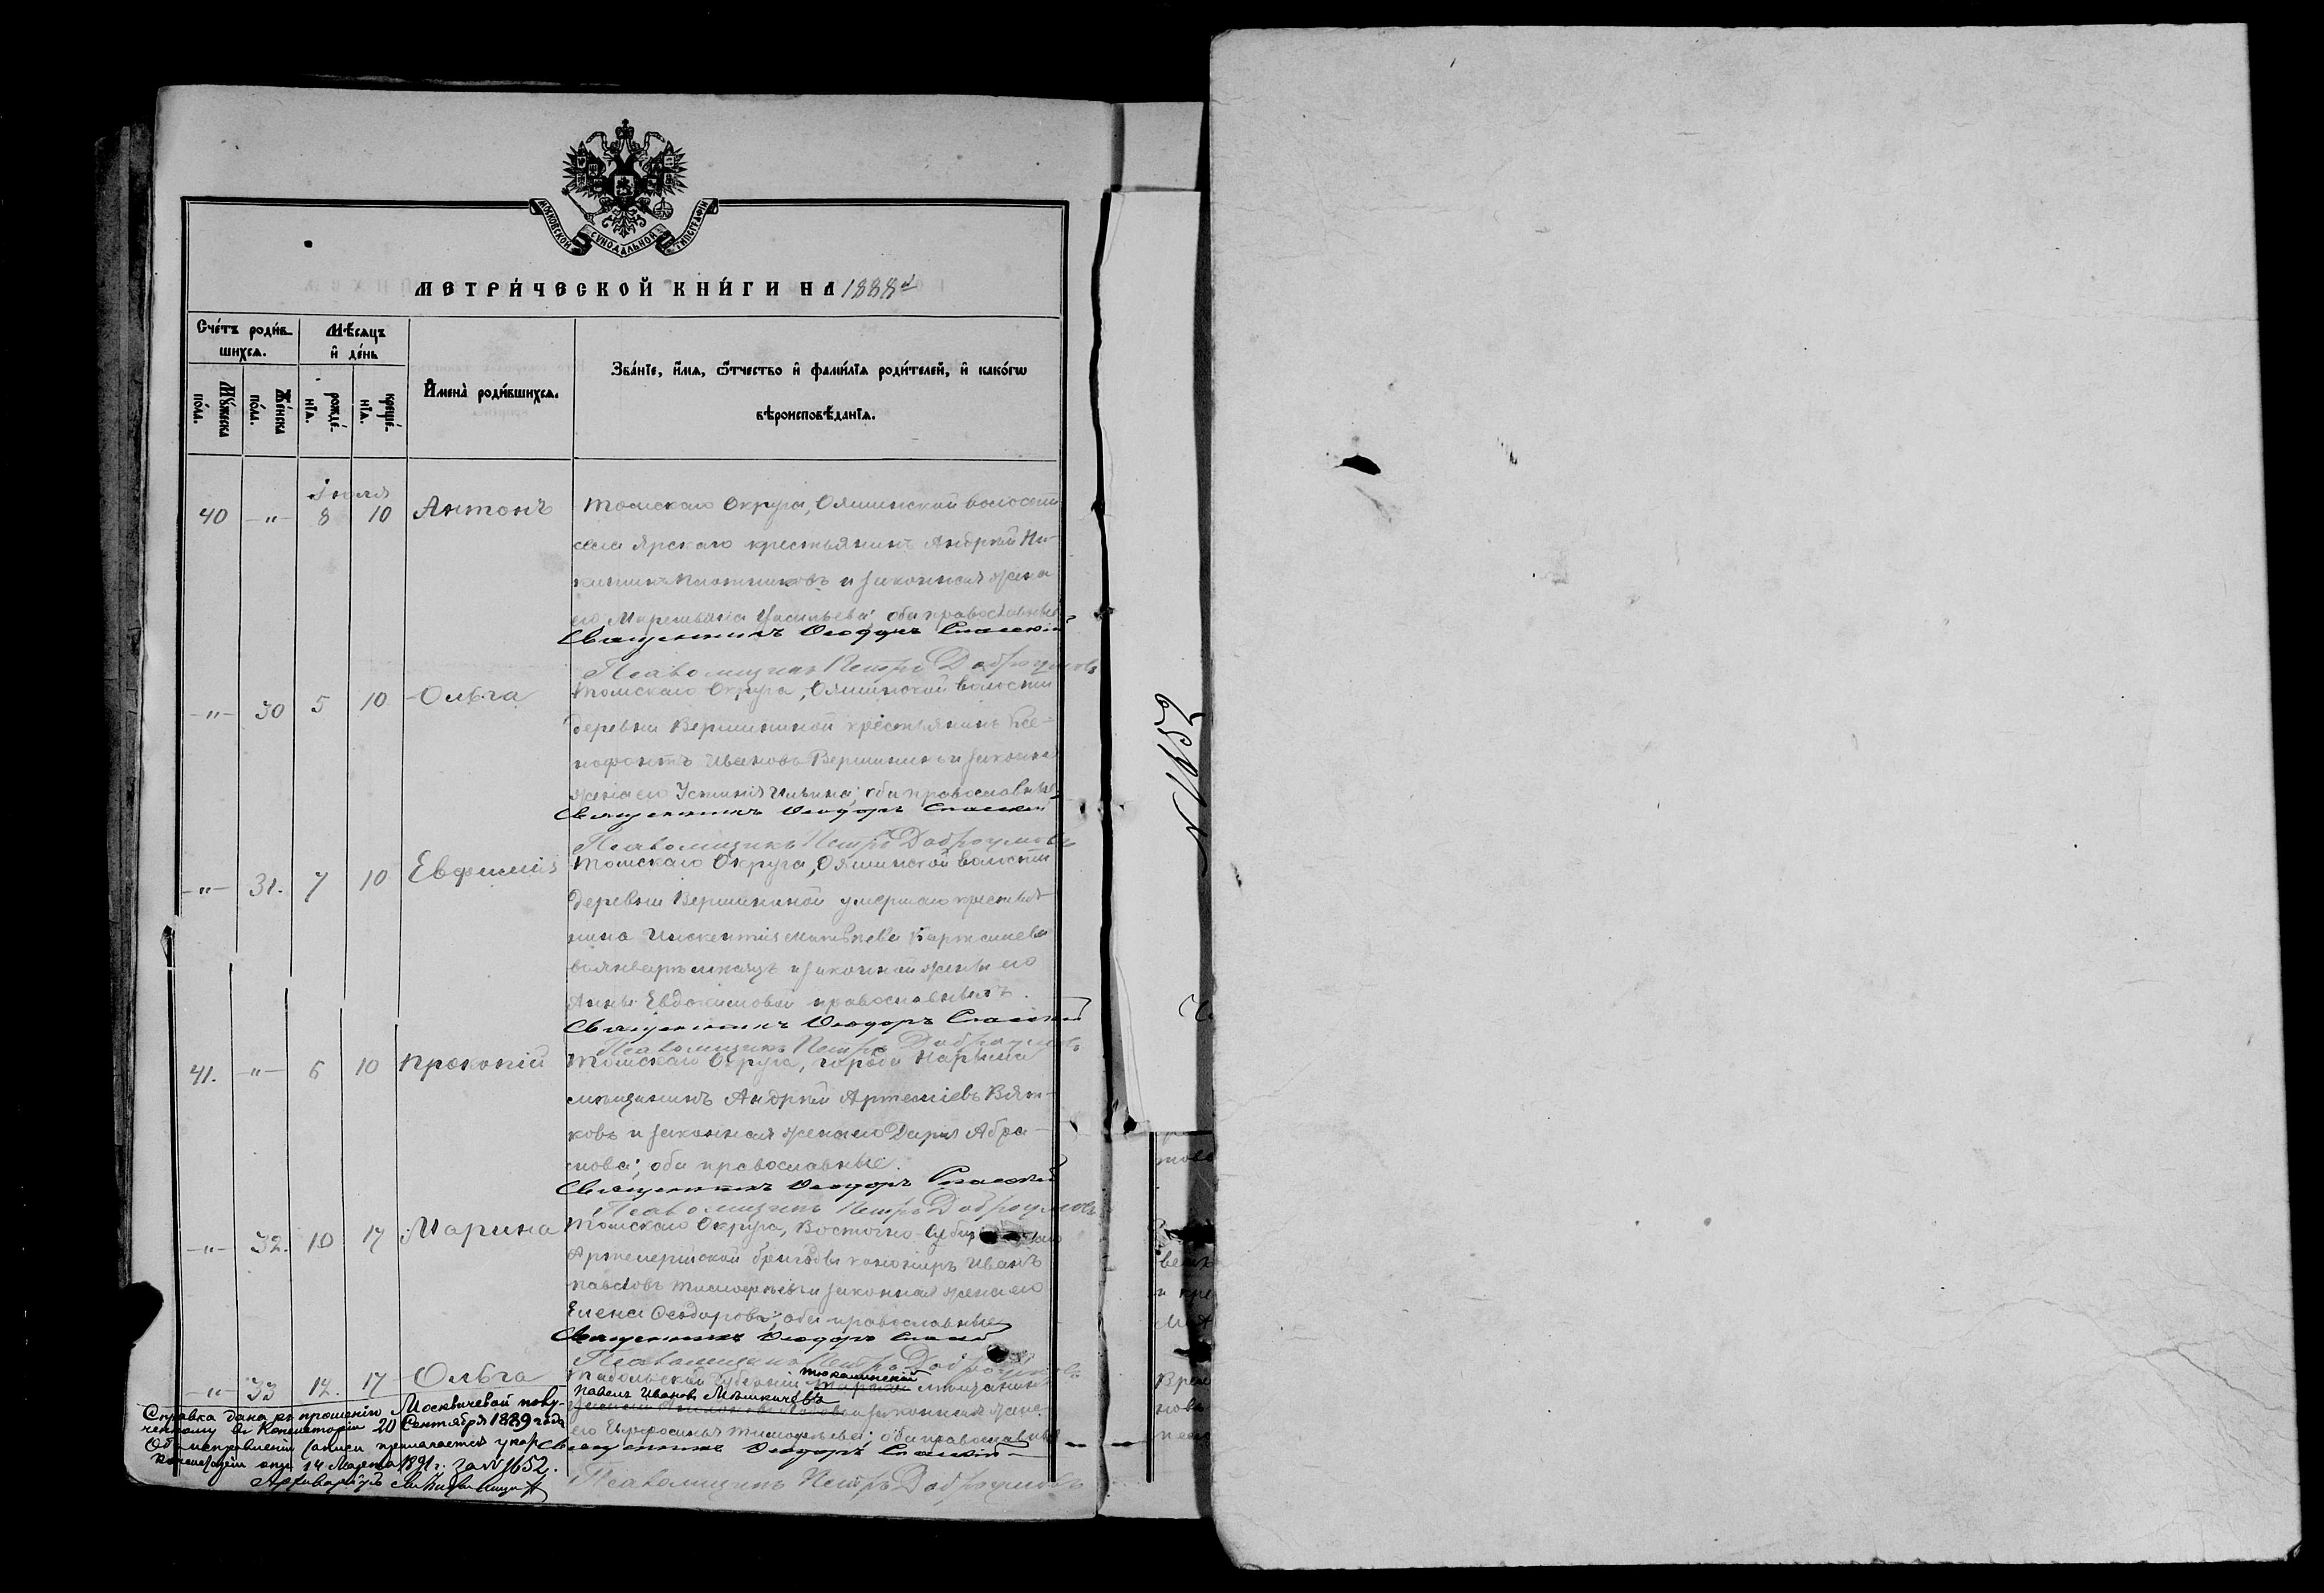 МОСКОВСКОЙ СѴНОДАЛЬНОЙ ТИПОГРАФІИ
МЕТРИ́ЧЕСКОЙ КНИ́ГИ НА 1888 й
Сче́тъ роди́в-
шихсѧ.
Мѣ́сѧцъ
и҆ де́нь
Му́жеска
по́ла.
Же́нска
по́ла.
рожде́-
нїѧ.
креще́-
нїѧ.
И҆мена̀ роди́вшихсѧ.
Зва́нїе, и҆́мѧ, ѻ҆́тчество и҆ фами́лїѧ роди́телей, и҆ како́гѡ
вѣроисповѣ́данїѧ.
Іюля
40 -"- 8 10 Антонъ Томскаго Округа, Ояшинской волости
села Ярскаго крестьянинъ Андрей Ни-
китинъ Плотниковъ и законная жена
его Васильева; оба православные
Священникъ Ѳеодоръ Спасскій
Псаломщикъ Петръ Доброумовъ
-"- 30 5 10 Ольга Томскаго Округа, Ояшинской волости
деревни Вершининой крестьянинъ Ксе-
нофонтъ Ивановъ Вершининъ и законная
жена его Устинія Ильина; оба православные
Священникъ Ѳеодоръ Спасскій
Псаломщикъ Петръ Доброумовъ
-"- 31. 7 10 Евфимія Томскаго Округа, Ояшинской волости
деревни Вершининой умершаго крестья-
нина Иннокентія Матвѣева
въ январѣ мѣсяцѣ и законной жены его
Анны Евдокимовой православныхъ.
Священникъ Ѳеодоръ Спасскій
Псаломщикъ Петръ Доброумовъ
41. -"- 6 10 Прокопій Томскаго Округа, города Нарыма
мѣщанинъ Андрей Артеміевъ Вят-
ковъ и законная жена его Дарія Абра-
мова; оба православные.
Священникъ Ѳеодоръ Спасскій
Псаломщикъ Петръ Доброумовъ
-"- 32. 10 17 Марина Томскаго Округа, Восточно-Сибирской
Артилерійской бригады канониръ Иванъ
Павловъ Тимофеевъ и законная жена его
Елена Ѳеодорова; оба православные
Священникъ Ѳеодоръ Спасскій
Псаломщикъ Петръ Доброумовъ
-"- 33 12. 17 Ольга Тобольской Губерніи тюкалинскій мѣщанинъ
Павелъ Ивановъ Мѣшкичевъ
и законная жена
его Евфросинья Тимофеева; оба православные
Священникъ Ѳеодоръ Спасскій
Псаломщикъ Петръ Доброумовъ
Справка дана по прошенію Москвичевой полу-
ченному въ Консисторіи 20 Сентября 1889 года
Объ исправленіи записи прилагается указъ
Консисторіи отъ 14 Марта 1891 г. за № 1652.
Архиваріусъ
№ 1652